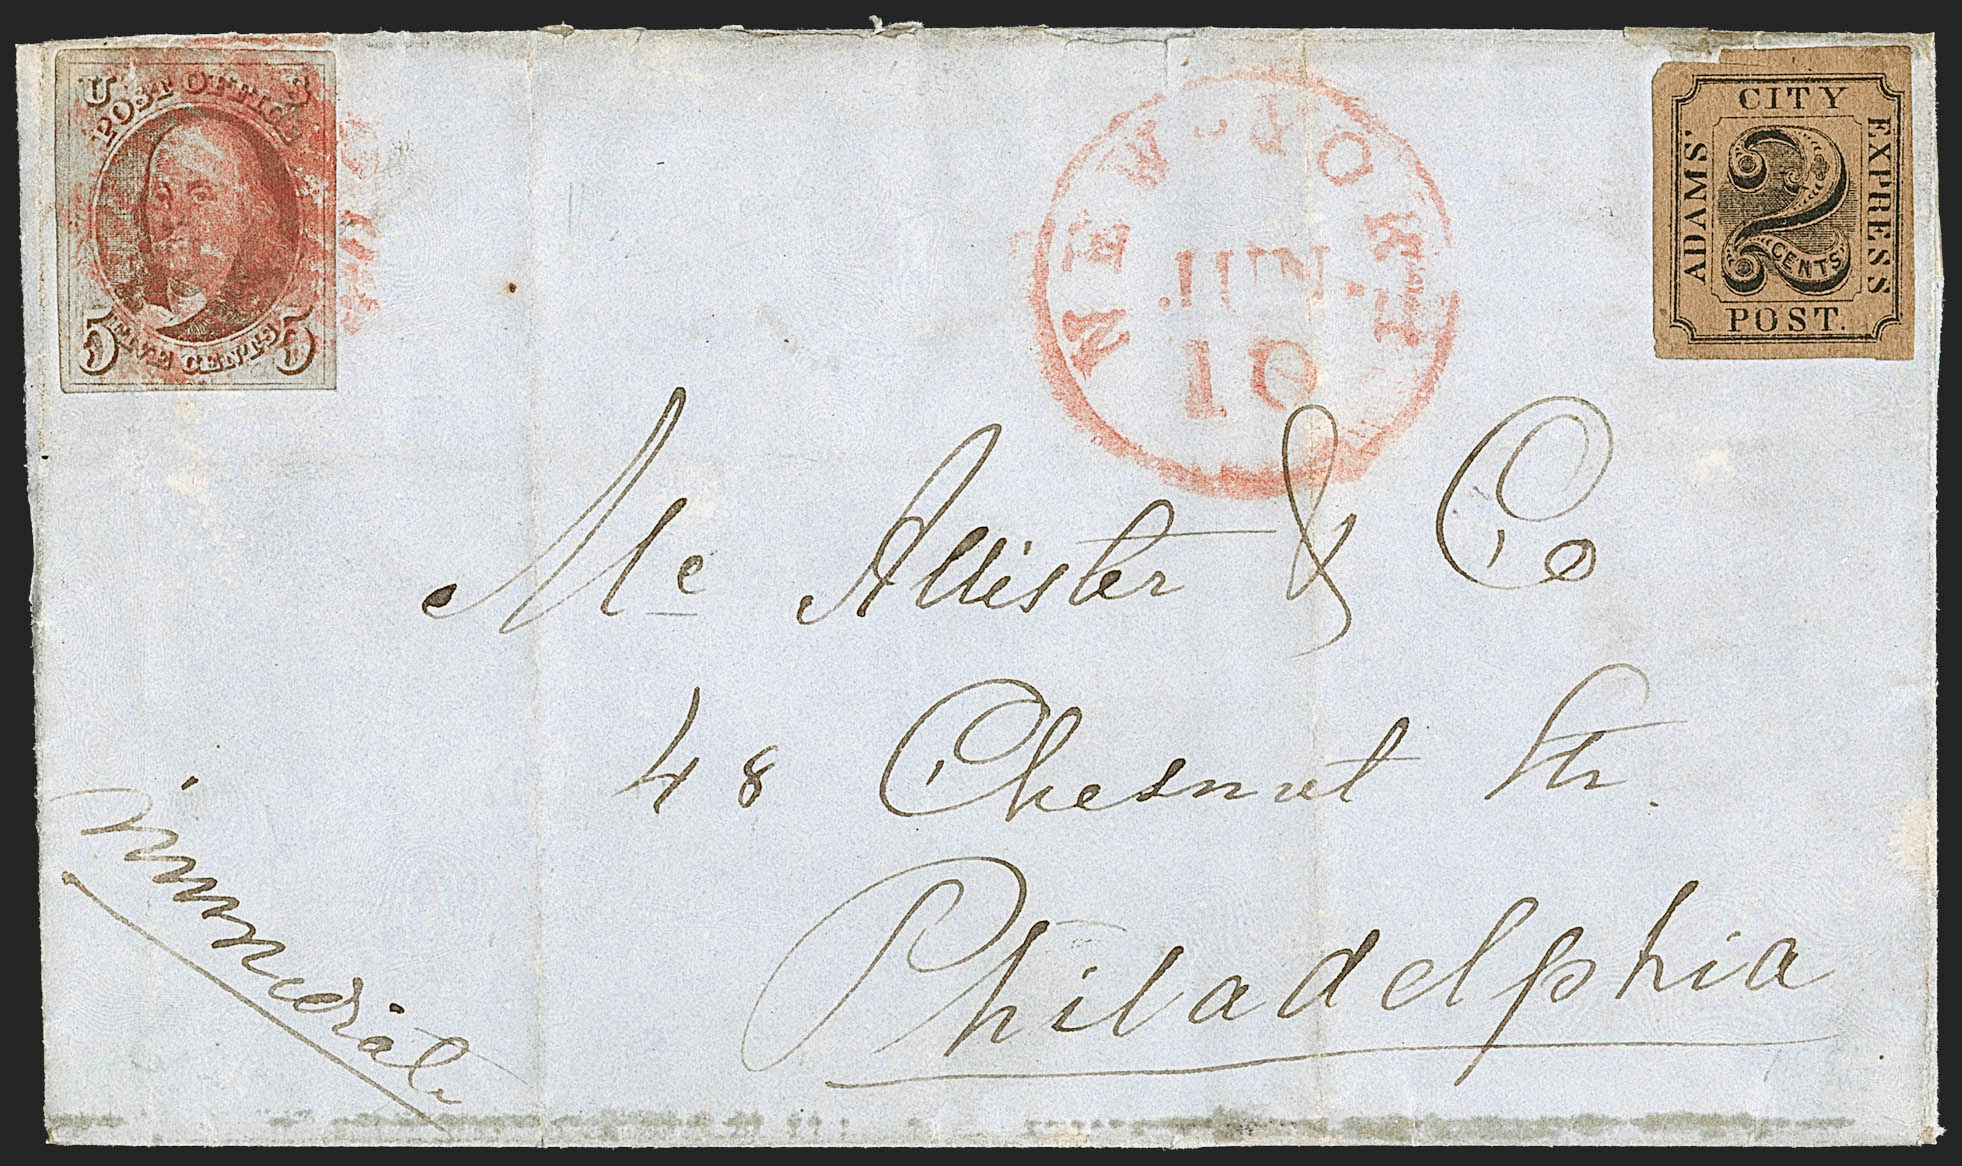 U S
POST OFFICE
FIVE CENTS
5 5
NEW-YORK
JUN
10
CITY
ADAMS'
EXPRESS
2
CENTS
POST.
Mc Allister & Co
48 Chesnut Str.
Philadelphia